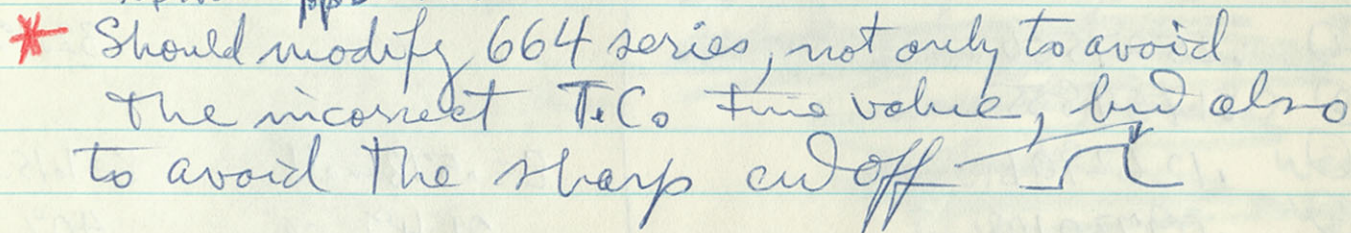 * Should modify 664 series, not only to avoid
the incorrect TiCo time value, but also
to avoid the sharp cutoff